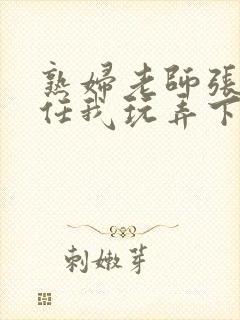 熟婦老師張
任我玩弄下
刺嫩芽